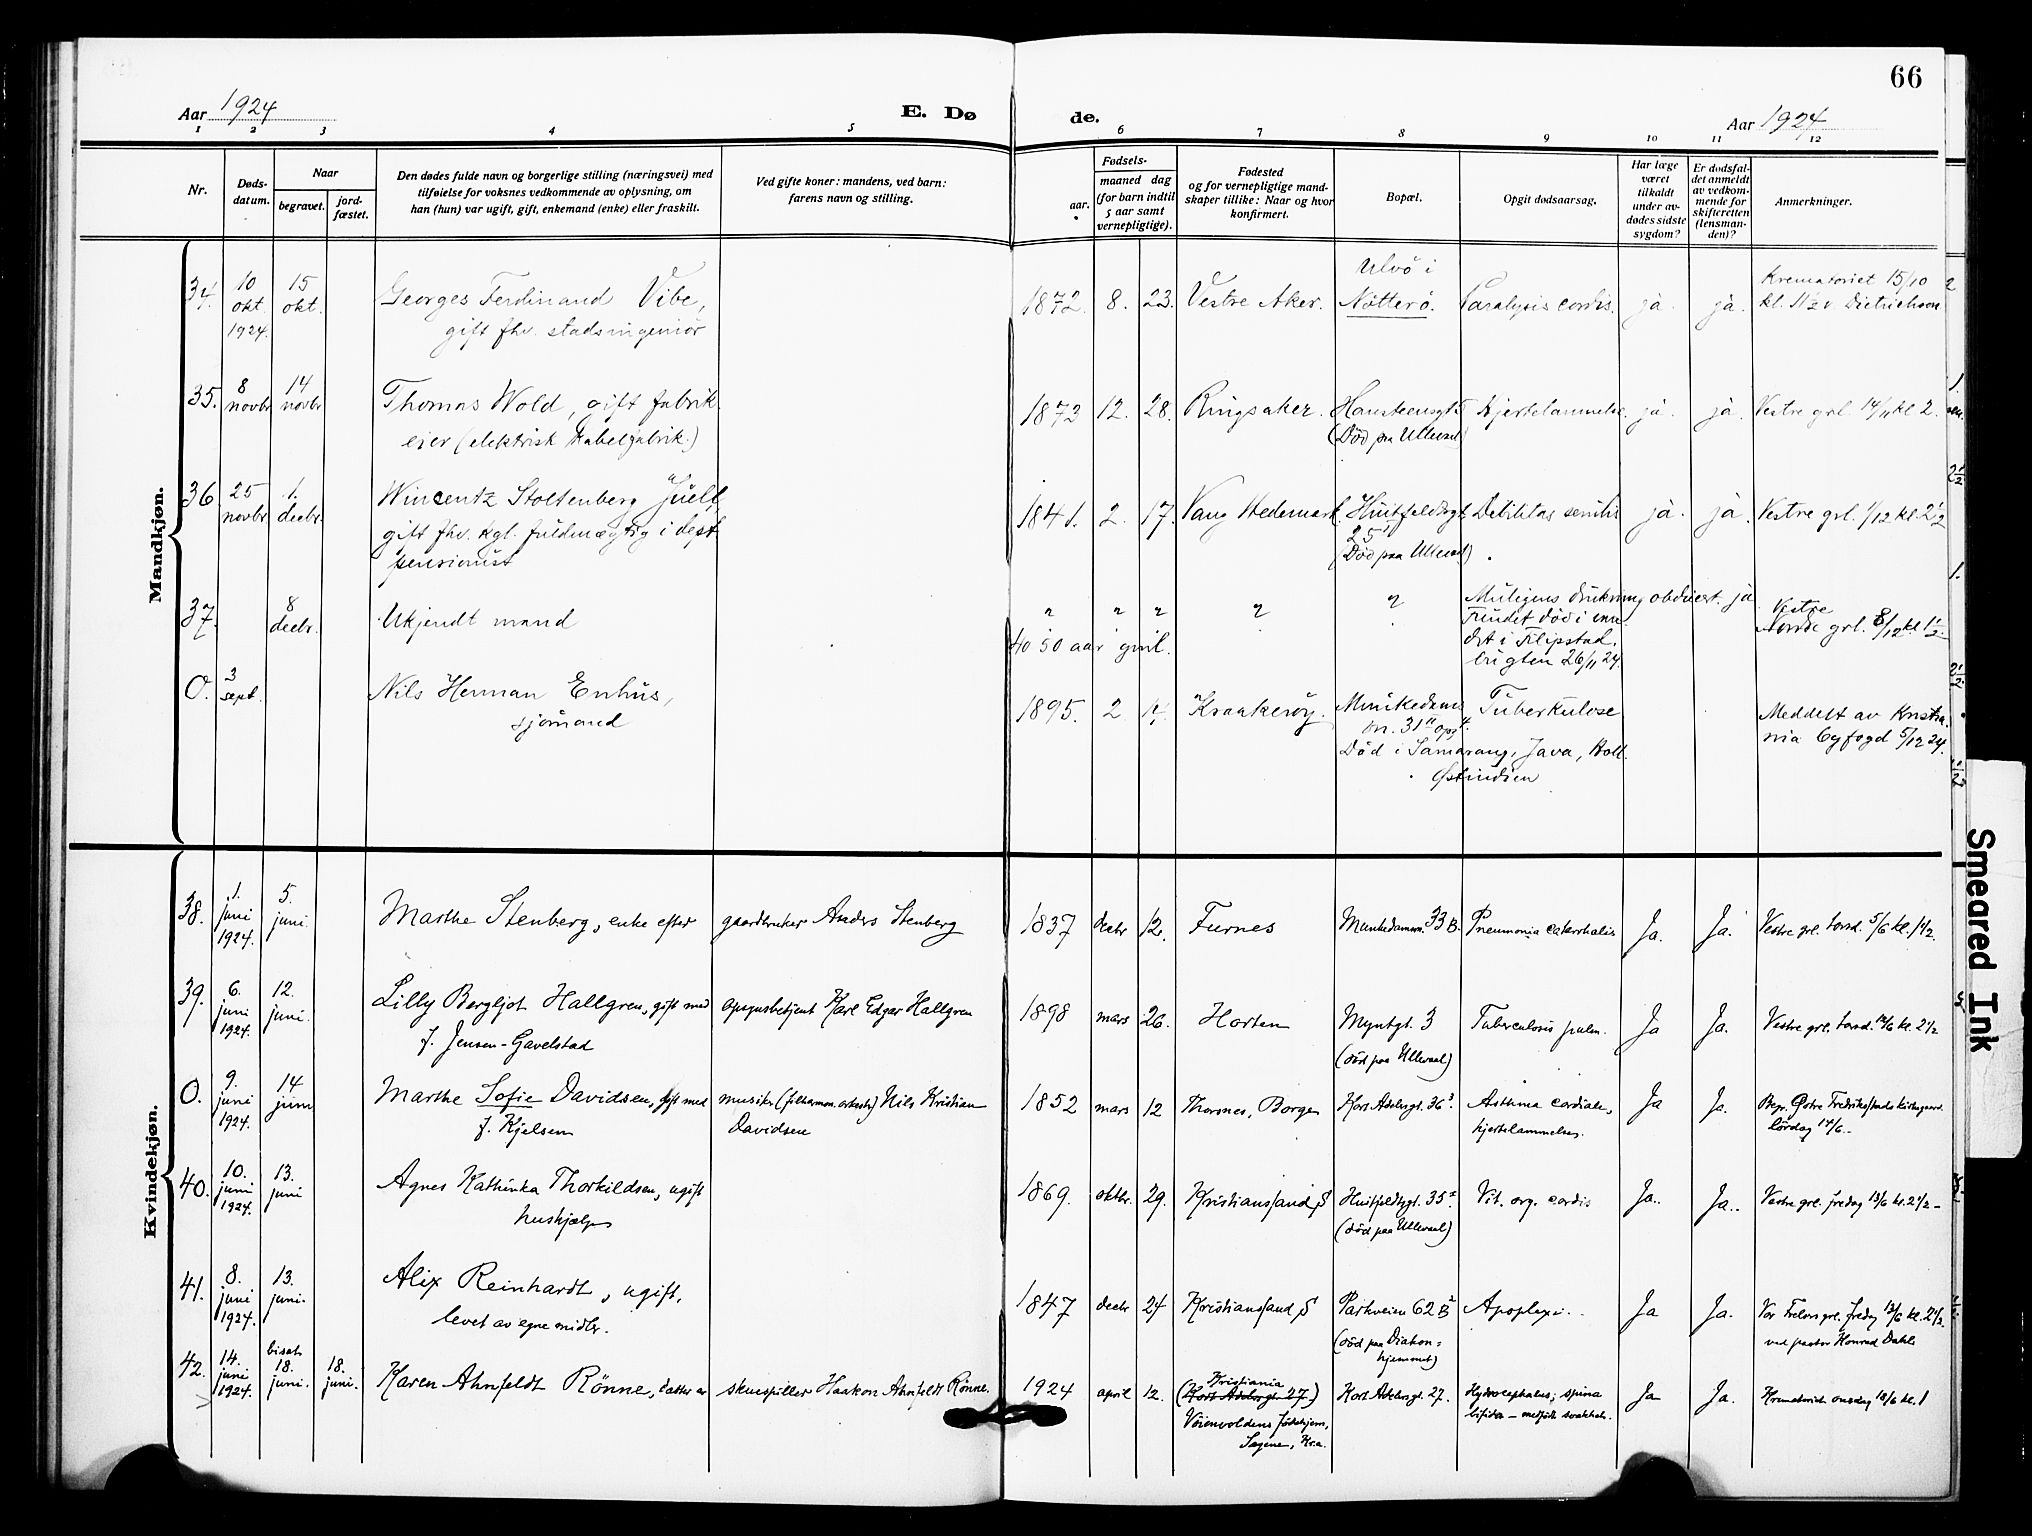 66
Aar 1924
E. Dø
de.
Aar 1924
1 2 3 4 5 6 7 8 9 10 11 12
Nr.
Døds-
datum.
Naar
begravet.
jord-
fæstet.
Den dødes fulde navn og borgerlige stilling (næringsvei) med
tilføielse for voksnes vedkommende av oplysning, om
han (hun) var ugift, gift, enkemand (enke) eller fraskilt.
Ved gifte koner: mandens, ved barn:
farens navn og stilling.
Fødsels-
aar.
maaned dag
(for barn indtil
5 aar samt
vernepligtige).
Fødested
og for vernepligtige mand-
skaper tillike: Naar og hvor
konfirmert.
Bopæl.
Opgit dødsaarsag.
Har læge
været
tilkaldt
under av-
dødes sidste
sygdom?
Er dødsfal-
det anmeldt
av vedkom-
mende for
skifteretten
(lensman-
den)?
Anmerkninger.
Mandkjøn.
34.
10
okt.
1924.
15
okt.
Georges Ferdinand Vibe,
gift fhv. stadsingeniør
1872. 8. 23.
Vestre Aker.
Ulvö i
Nötterö.
Paralysis cordis.
ja.
ja.
Krematoriet 15/10
kl. 11½ v. Dietrichson
35.
8
novbr
14
novbr
Thomas Wold, gift fabrik
eier (elektrisk kabelfabrik.)
1872 12. 28.
Ringsaker.
Hansteensgt 5
(Död paa Ullevaal)
Hjertelammelse.
ja.
ja.
Vestre grl. 14/11 kl 2.
36
25
novbr
1.
decbr.
Wincentz Stoltenberg Juell,
gift fhv. kgl. fuldmægtig i dept.
pensionist
1841. 2. 17.
Vang Hedemark.
Huitfeldtsgt.
25
(Död paa Ullevaal)
Debilitas senilis
ja.
ja.
Vestre grl. 1/12 kl. 2½
37.
8
decbr.
Ukjendt mand
40 50 aar gml.
Muligens drukning obducert. ja
Fundet död i van-
det i Filipstad.
bugten 26/11 24.
Vestre
Nordre grl. 8/12 kl 1½.
0.
3
sept.
Nils Herman Enhus,
sjömand
1895. 2 14.
Kraakeröy.
Munkedams
vn. 31 opg 4.
Död i Samarang, Java, Holl.
Østindien
Tuberkulose
Meddelt av Kristia-
nia byfogd 5/12 24.
Kvindekjøn.
38.
1.
juni
1924.
5.
juni.
Marthe Stenberg, enke efter
gaardbruker Anders Stenberg
1837 decbr 12.
Furnes
Munkedamsvn. 33 B.
Pneumonia catarrhalis
Ja.
Ja.
Vestre grl. torsd. 5/6 kl. 1½.
39.
6.
juni
1924.
12.
juni.
Lilly Bergljot Hallgren, gift med
f. Jensen-Gavelstad
opsynsbetjent Karl Edgar Hallgren
1898 mars 26.
Horten
Myntgt. 3
(död paa Ullevaal)
Tuberculosis pulm.
Ja
Ja.
Vestre grl. torsd. 12/6 kl. 2½
0.
9.
juni
1924.
14
juni
Marthe Sofie Davidsen, gift med
f. Kjelsen
musiker (filharmon. orkester) Nils Kristian
Davidsen
1852 mars 12
Thorsnes, Borge
Kort Adelersgt. 36³.
Asthma cordiale,
hjertelammelse.
Ja
Ja.
Begr. Østre Fredrikstads kirkegaard.
lördag 14/6.-
40.
10.
juni
1924.
13.
juni
Agnes Kathinka Thorkildsen, ugift
hushjælp
1869. oktbr. 29.
Kristianssand S
Huitfeldtsgt. 35
(död paa Ullevaal)
Vit. org. cordis
Ja..
Ja..
Vestre grl. fredag 13/6 kl. 2½ -
41.
8.
juni
1924.
13.
juni.
Alix Reinhardt, ugift,
levet av egne midler.
1847 decbr 24
Kristianssand S
Parkveien 62 B
(död paa Diakon-
hjemmet)
Apoplexi.
Ja
Ja.
Vor Frelsers grl. fredag 13/6 kl. 2½.
ved pastor Konrad Dahl
42.
14.
juni
1924.
bisat
18.
juni.
18.
juni.
Karen Ahnfeldt Rönne, datter av
skuespiller Haakon Ahnfeldt Rönne.
1924 april 12.
Kristiania
(Kort Adelersgt. 27.)
Vöienvoldens födehjem,
Sagene, Kr.a.
Kort Adelersgt. 27.
Hydrocephalus; spina
bifida – medfödt svakhet.
Ja
Ja.
Krematoriet onsdag 18/6 kl. 1
Smeared Ink